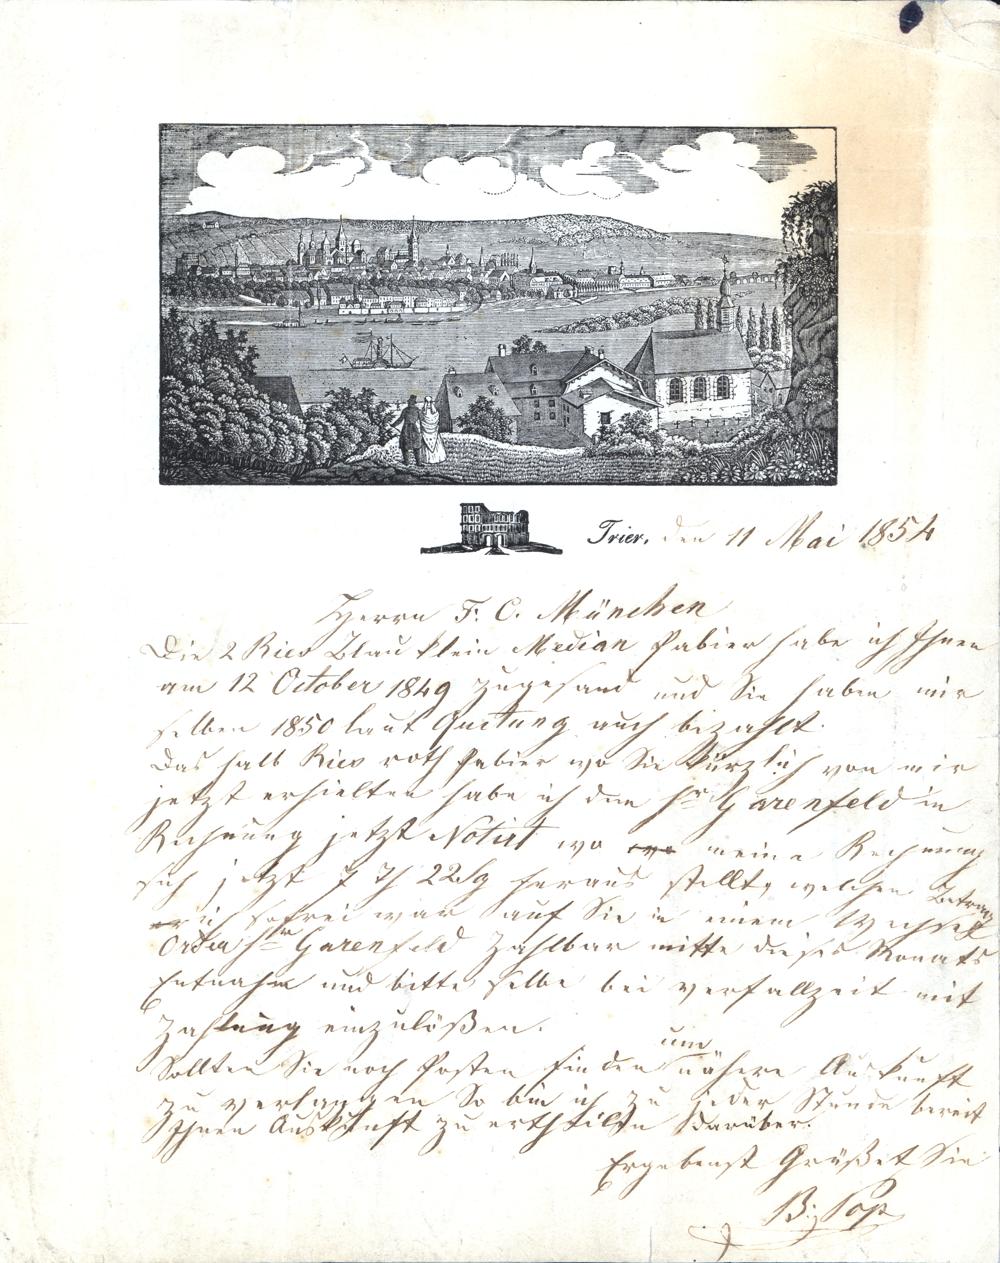 Trier, den 11 Mai 1854
Herrn F. C. München
Die 2 Ries Blau klein Median Pabier habe ich Ihnen
am 12 October 1849 zugesand und Sie haben mir
selben 1850 laut Quitung auch bezahlt.
Das halb Ries roth Pabier wo Sie kürzlich von mir
jetzt erhielten habe ich den Hr Garenfeld in
Rechnung jetzt Notirt wo meine Rechnung
sich jetzt 7 Th 22 Sg heraus stellt, welchen Betrag
ich so frei war auf Sie in einem Wechsel
Ordra Hr Garenfeld Zahlbar mitte dieses Monats
Entnahm und bitte selbe bei verfallzeit mit
Zahlung einzulößen.
Sollten Sie noch Posten finden um nähere Auskunft
zu verlangen So bin ich zu jeder Stunde bereit
Ihnen Auskunft zu ertheilen darüber.
Ergebenst Grüßet Sie
B: